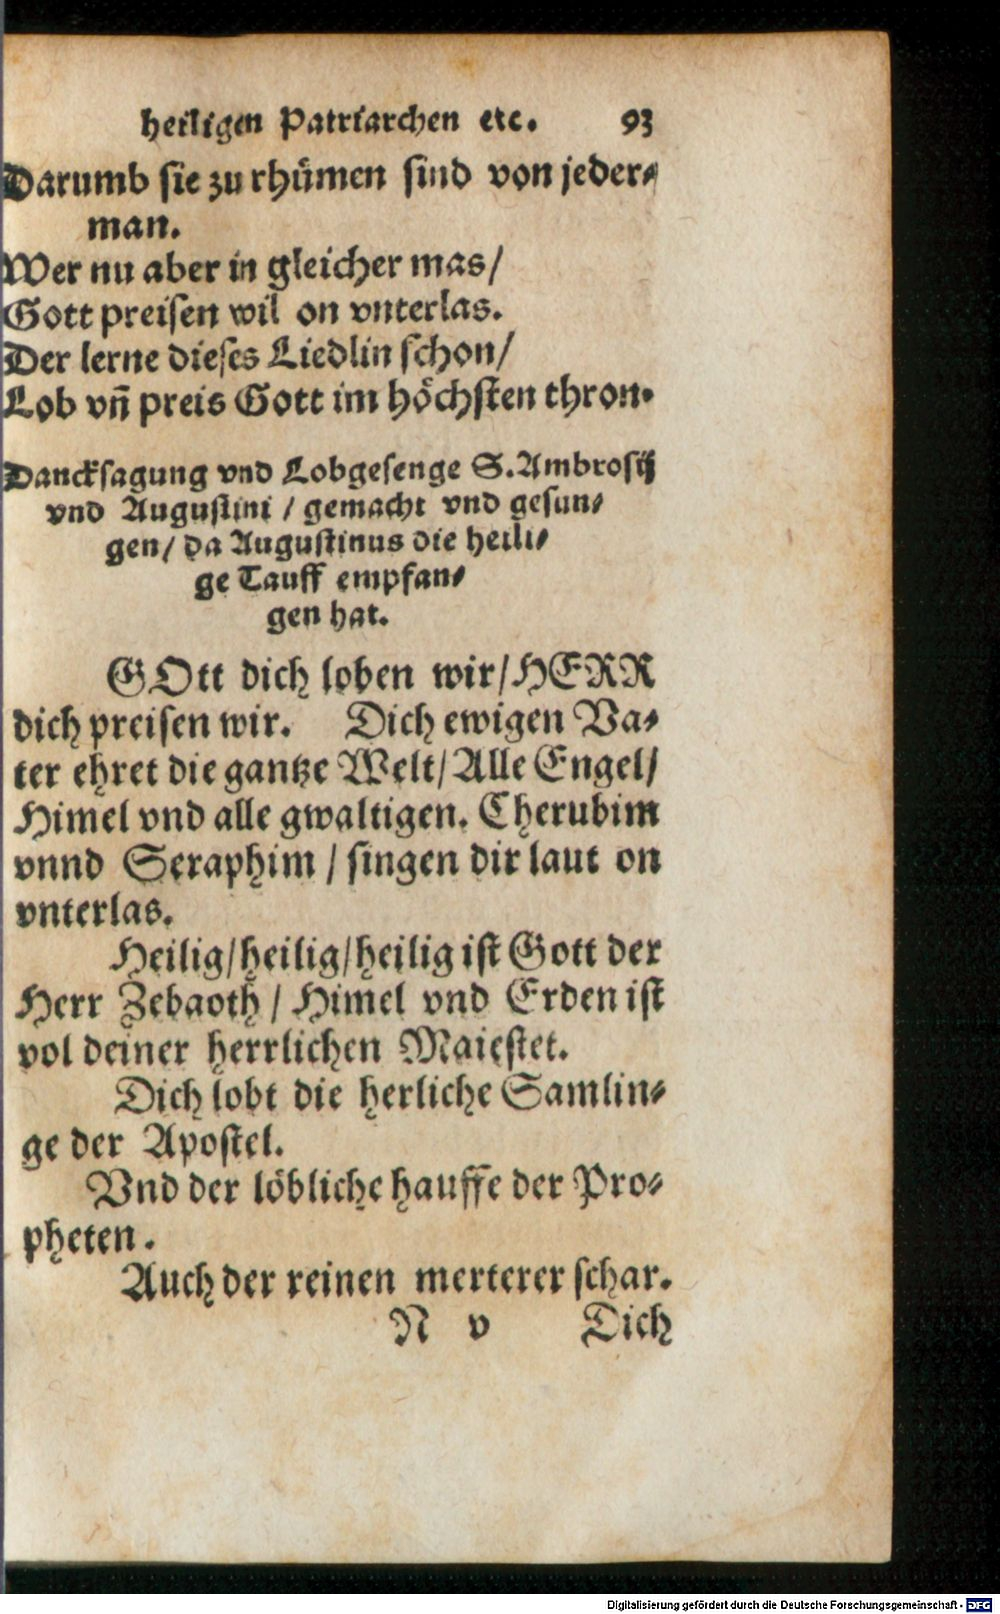 heiligen Patriarchen etc. 93
Darumb sie zu rhümen sind von jeder⸗
man.
Wer nu aber in gleicher mas/
Gott preisen wil on vnterlas.
Der lerne dieses Liedlin schon/
Lob vñ preis Gott im höchsten thron.
Dancksagung vnd Lobgesenge S. Ambrosij
vnd Augustini / gemacht vnd gesun⸗
gen/ da Augustinus die heili⸗
ge Tauff empfan⸗
gen hat.
GOtt dich loben wir/HERR
dich preisen wir. Dich ewigen Va⸗
ter ehret die gantze Welt/Alle Engel/
Himel vnd alle gwaltigen. Cherubim
vnnd Seraphim / singen dir laut on
vnterlas.
Heilig/heilig/heilig ist Gott der
Herr Zebaoth / Himel vnd Erden ist
vol deiner herrlichen Maiestet.
Dich lobt die herliche Samlin⸗
ge der Apostel.
Vnd der löbliche hauffe der Pro⸗
pheten.
Auch der reinen merterer schar.
N v Dich
Digitalisierung gefördert durch die Deutsche Forschungsgemeinschaft - DFG